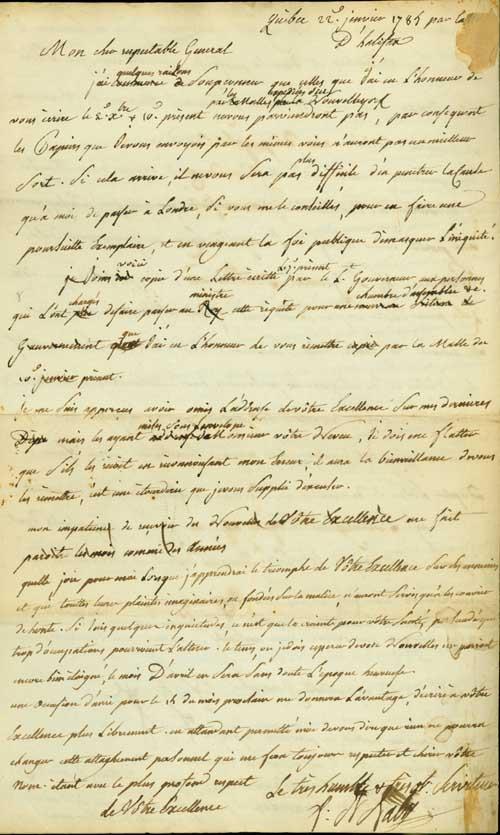 Québec 22.e janvier 1785 par la
D'halifax
Mon cher respectable General
quelques raisons
j'ai de Soupconner que celles que J'ai eu L'honneur de
vous écrire le 2.e X.bre & 10.e présent ne vous parviendront pas, par consequent
les Copies que je vous envoyois par les mêmes vous n'auront pas un meilleur
plus
Sort. Si cela arrive, il ne vous Sera pas difficile d'en pénétrer la Cause
qu'à moi de passer à Londre, Si vous me le conseillés, pour en faire une
poursuitte Exemplaire, et en vengeant la foi publique démasquer L'iniquité.
voici
je Joins copie d'une Lettre écritte par le L.t Gouverneur aux personnes
chargés ministre chambre d'assemblée &c.
qui L'ont de faire passer au cette requête pour une
Gouvernement que J'ai eu L'honneur de vous remettre par la Malle de
10.e janvier présent.
Je me Suis apperçeus avoir omis Ladresse de vôtre Excellence Sur mes dernieres
mises Sous Envelope
mais les ayant à Monsieur vôtre Neveu, je dois me flatter
que S'il les reçoit en reconnoissant mon Erreur, il aura la bienveillance de vous
les remettre, c'est une étourderie que je vous Supplie d'excuser.
mon impatience de recevoir des Nouvelles de Vôtre Excellence me fait
paroitre les mois comme des Années
quelle joie pour moi Lorsque j'apprendrai le triomphe de Vôtre Excellence Sur Ses ennemies
et que toutes leurs plaintes imaginaires, ou fondées Sur la malice, n'auront Servis qu'à les couvrir
de honte. Si J'ois quelques inquiétudes, ce n'est que la crainte pour vôtre Santé, par
trop d'occupations pourroient L'alterer. le tems ou je dois esperer de vos Nouvelles
encore bien éloigné, le mois D'avril en Sera Sans doute L'Epoque heureuse.
une occasion d'icie pour le 15 du mois prochain me donnera L'avantage, d'écrire à vôtre
Excellence plus Librement. en attendant permetté moi de vous dire que rien ne pourra
changer cette attachement personnel qui me fera toujours respecter et chérir vôtre
Nom. étant avec le plus profond respect
Le très humble & très ob. Serviteur
de Vôtre Excellence